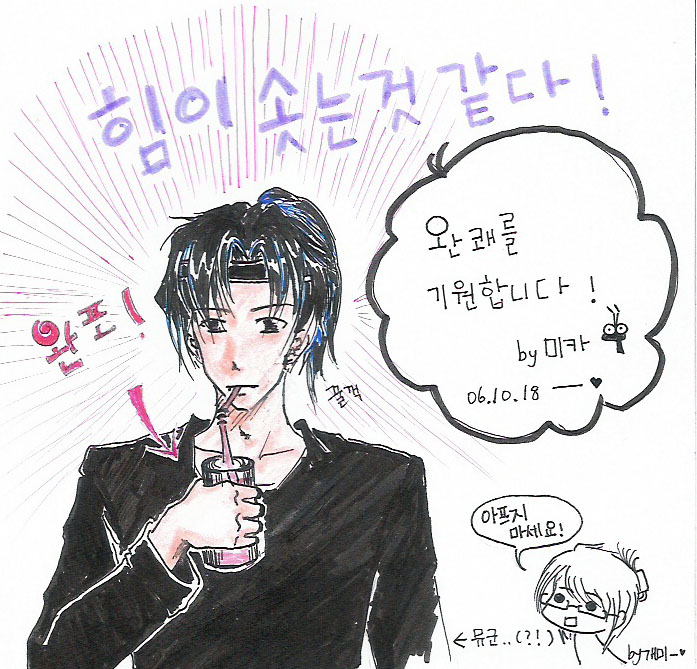 힘이 솟는것 같다!
완쾌를
기원합니다!
by 미카
06.10.18 ー♥
완포!
꿀꺽
아프지
마세요!
←뮤균..(?!)
by개미ー♥